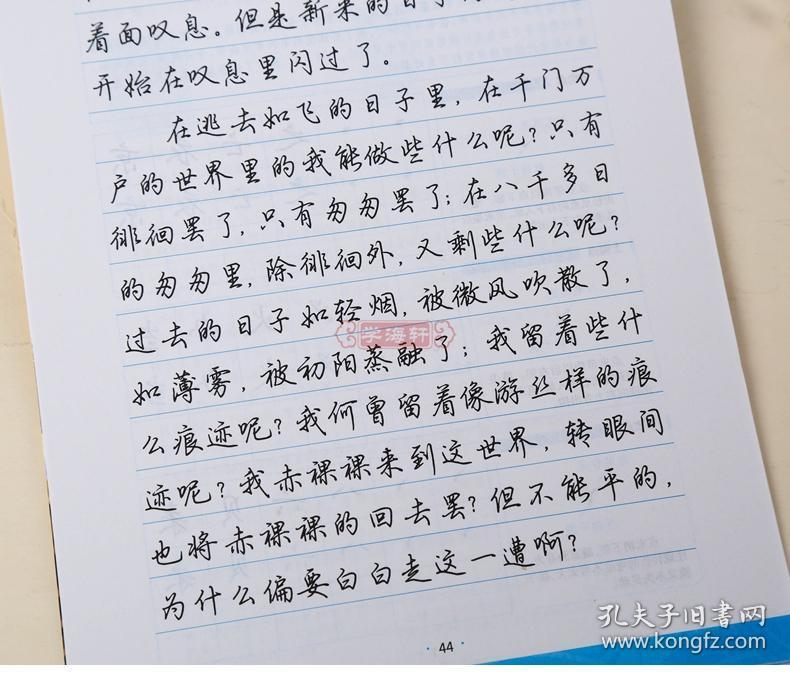 着面叹息。但是新来的日子
开始在叹息里闪过了。
在逃去如飞的日子里，在千门万
户的世界里的我能做些什么呢？只有
徘徊罢了，只有匆匆罢了；在八千多日
的匆匆里，除徘徊外，又剩些什么呢？
过去的日子如轻烟，被微风吹散了，
如薄雾，被初阳蒸融了；我留着些什
么痕迹呢？我何曾留着像游丝样的痕
迹呢？我赤裸裸来到这世界，转眼间
也将赤裸裸的回去罢？但不能平的，
为什么偏要白白走这一遭啊？
学海轩
44
孔夫子旧书网
www.kongfz.com